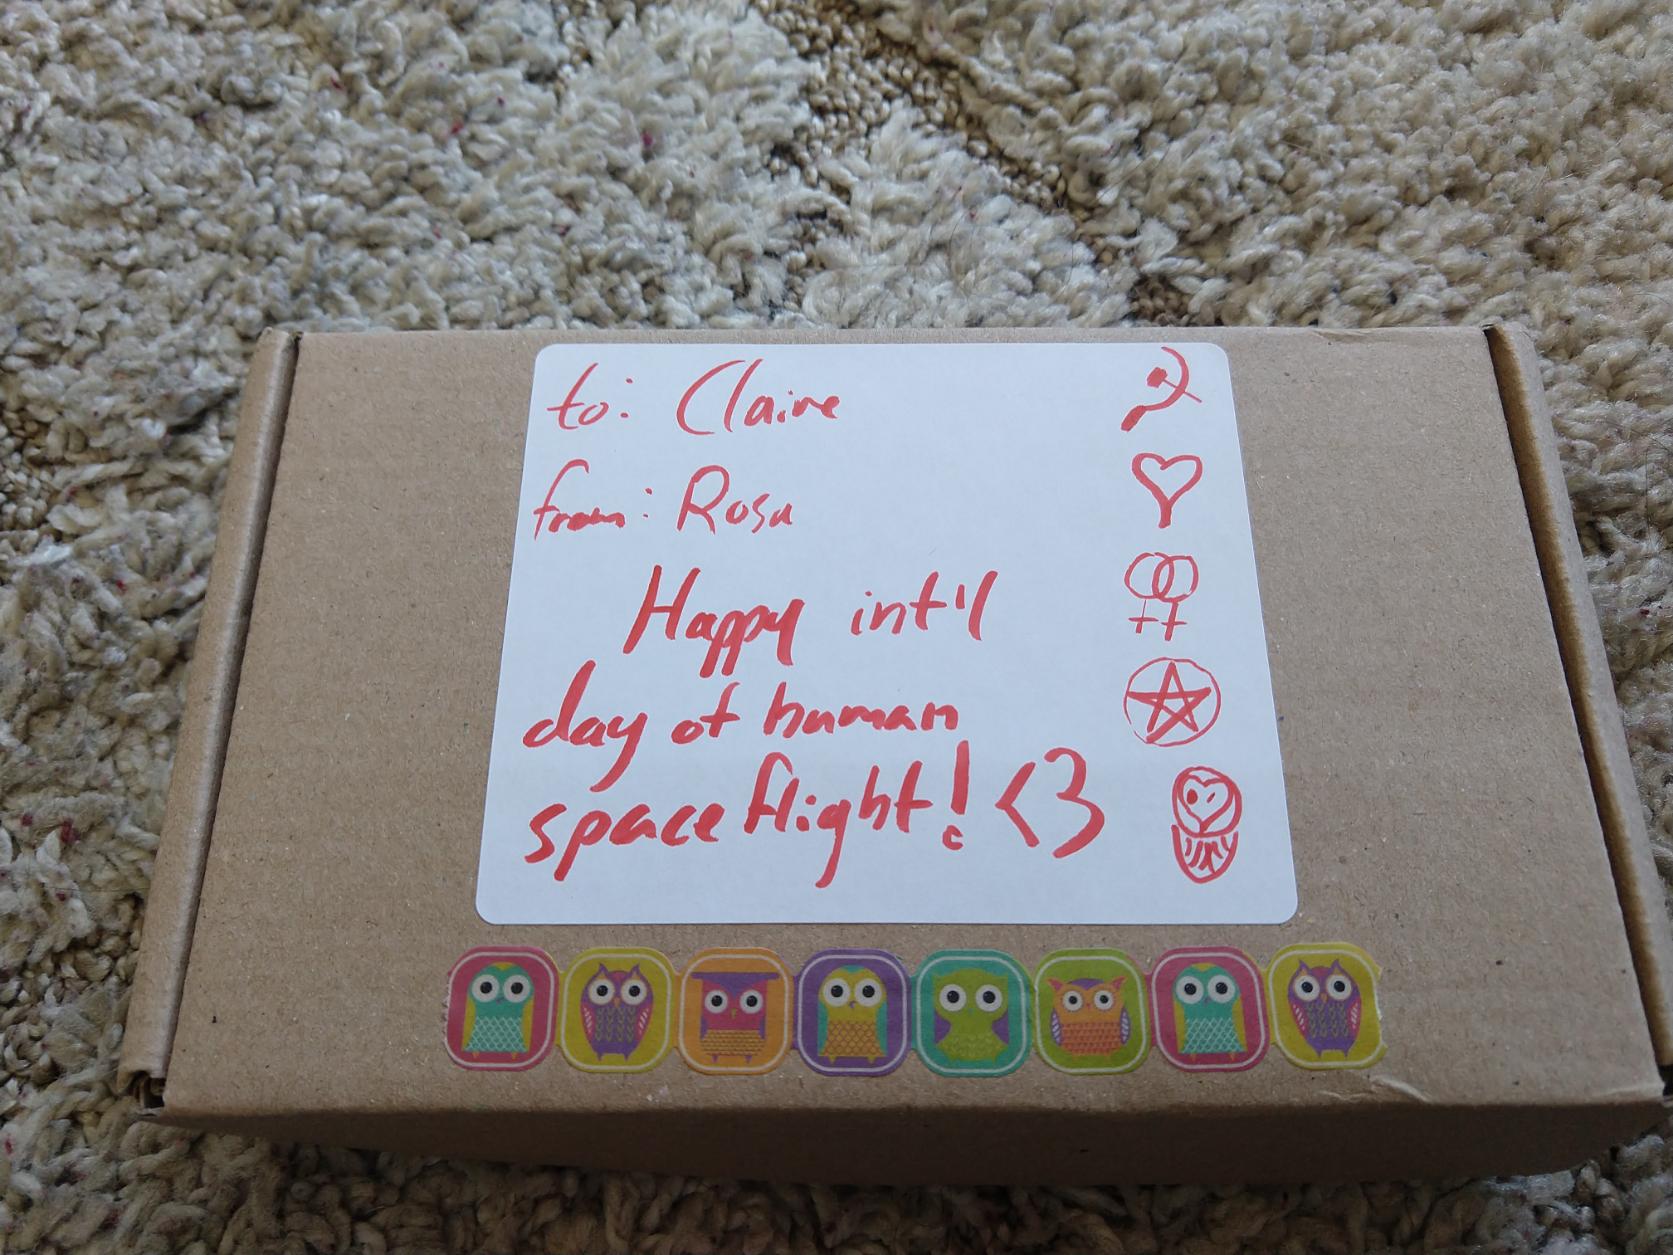 to: Claire
from: Rosa
Happy int'l
day of human
space flight! <3